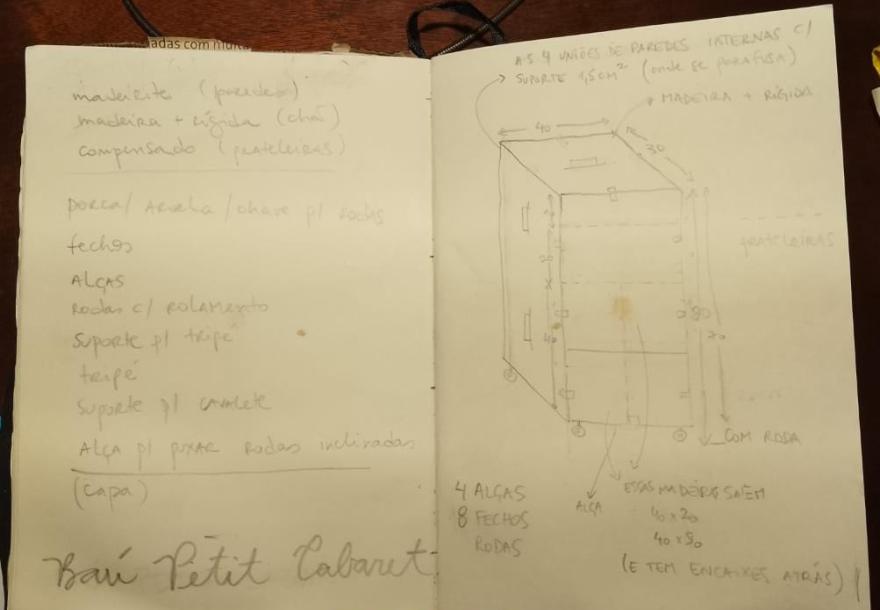 adas com mult
madeirite (paredes)
madeira + rígida (chão)
compensado (prateleiras)
porca / ARUELA / chave p/ rodas
fechos
ALÇAS
Rodas c/ ROLAMENTO
Suporte p/ tripé
tripé
Suporte p/ CAVALETE
ALÇA p/ puxar Rodas inclinadas
(capa)
Baú Pétit Cabaret
AS 4 UNIÕES DE PAREDES INTERNAS C/
SUPORTE 1,5cm² (onde se PARAFUSA)
MADEIRA + RÍGIDA
40
30
PRATELEIRAS
20
80
70
40
COM RODA
4 ALÇAS
8 FECHOS
RODAS
ALÇA
ESSAS MADEIRAS SAEM
40 x 20
40 x 50
(E TEM ENCAIXES ATRÁS)